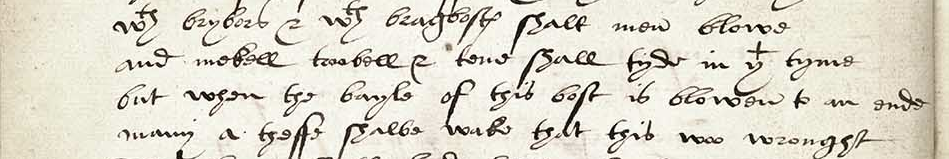 wth brybors & wth bragbostꝭ shalt men blowe
and mekell troobell & tene shall tyde in yt tyme
but when the bayle of this bost is blowen to an ende
many a theffe shalbe wake that this woo wrought